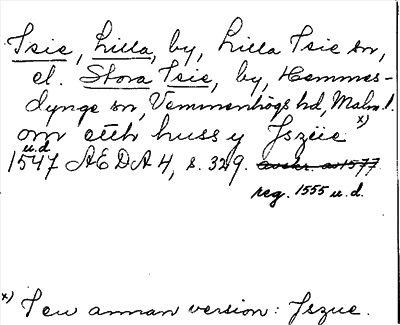 Isie, Lilla, by, Lilla Isie sn,
el. Stora Isie, by, Hemmes-
dynge sn, Vemmenhögs hd, Malm. l.
om etth huss y Jszüe x)
1547 u.d. AEDA 4, s. 329. avskr. av 1577.
reg. 1555 u.d.
x) I en annan version: Jszue.